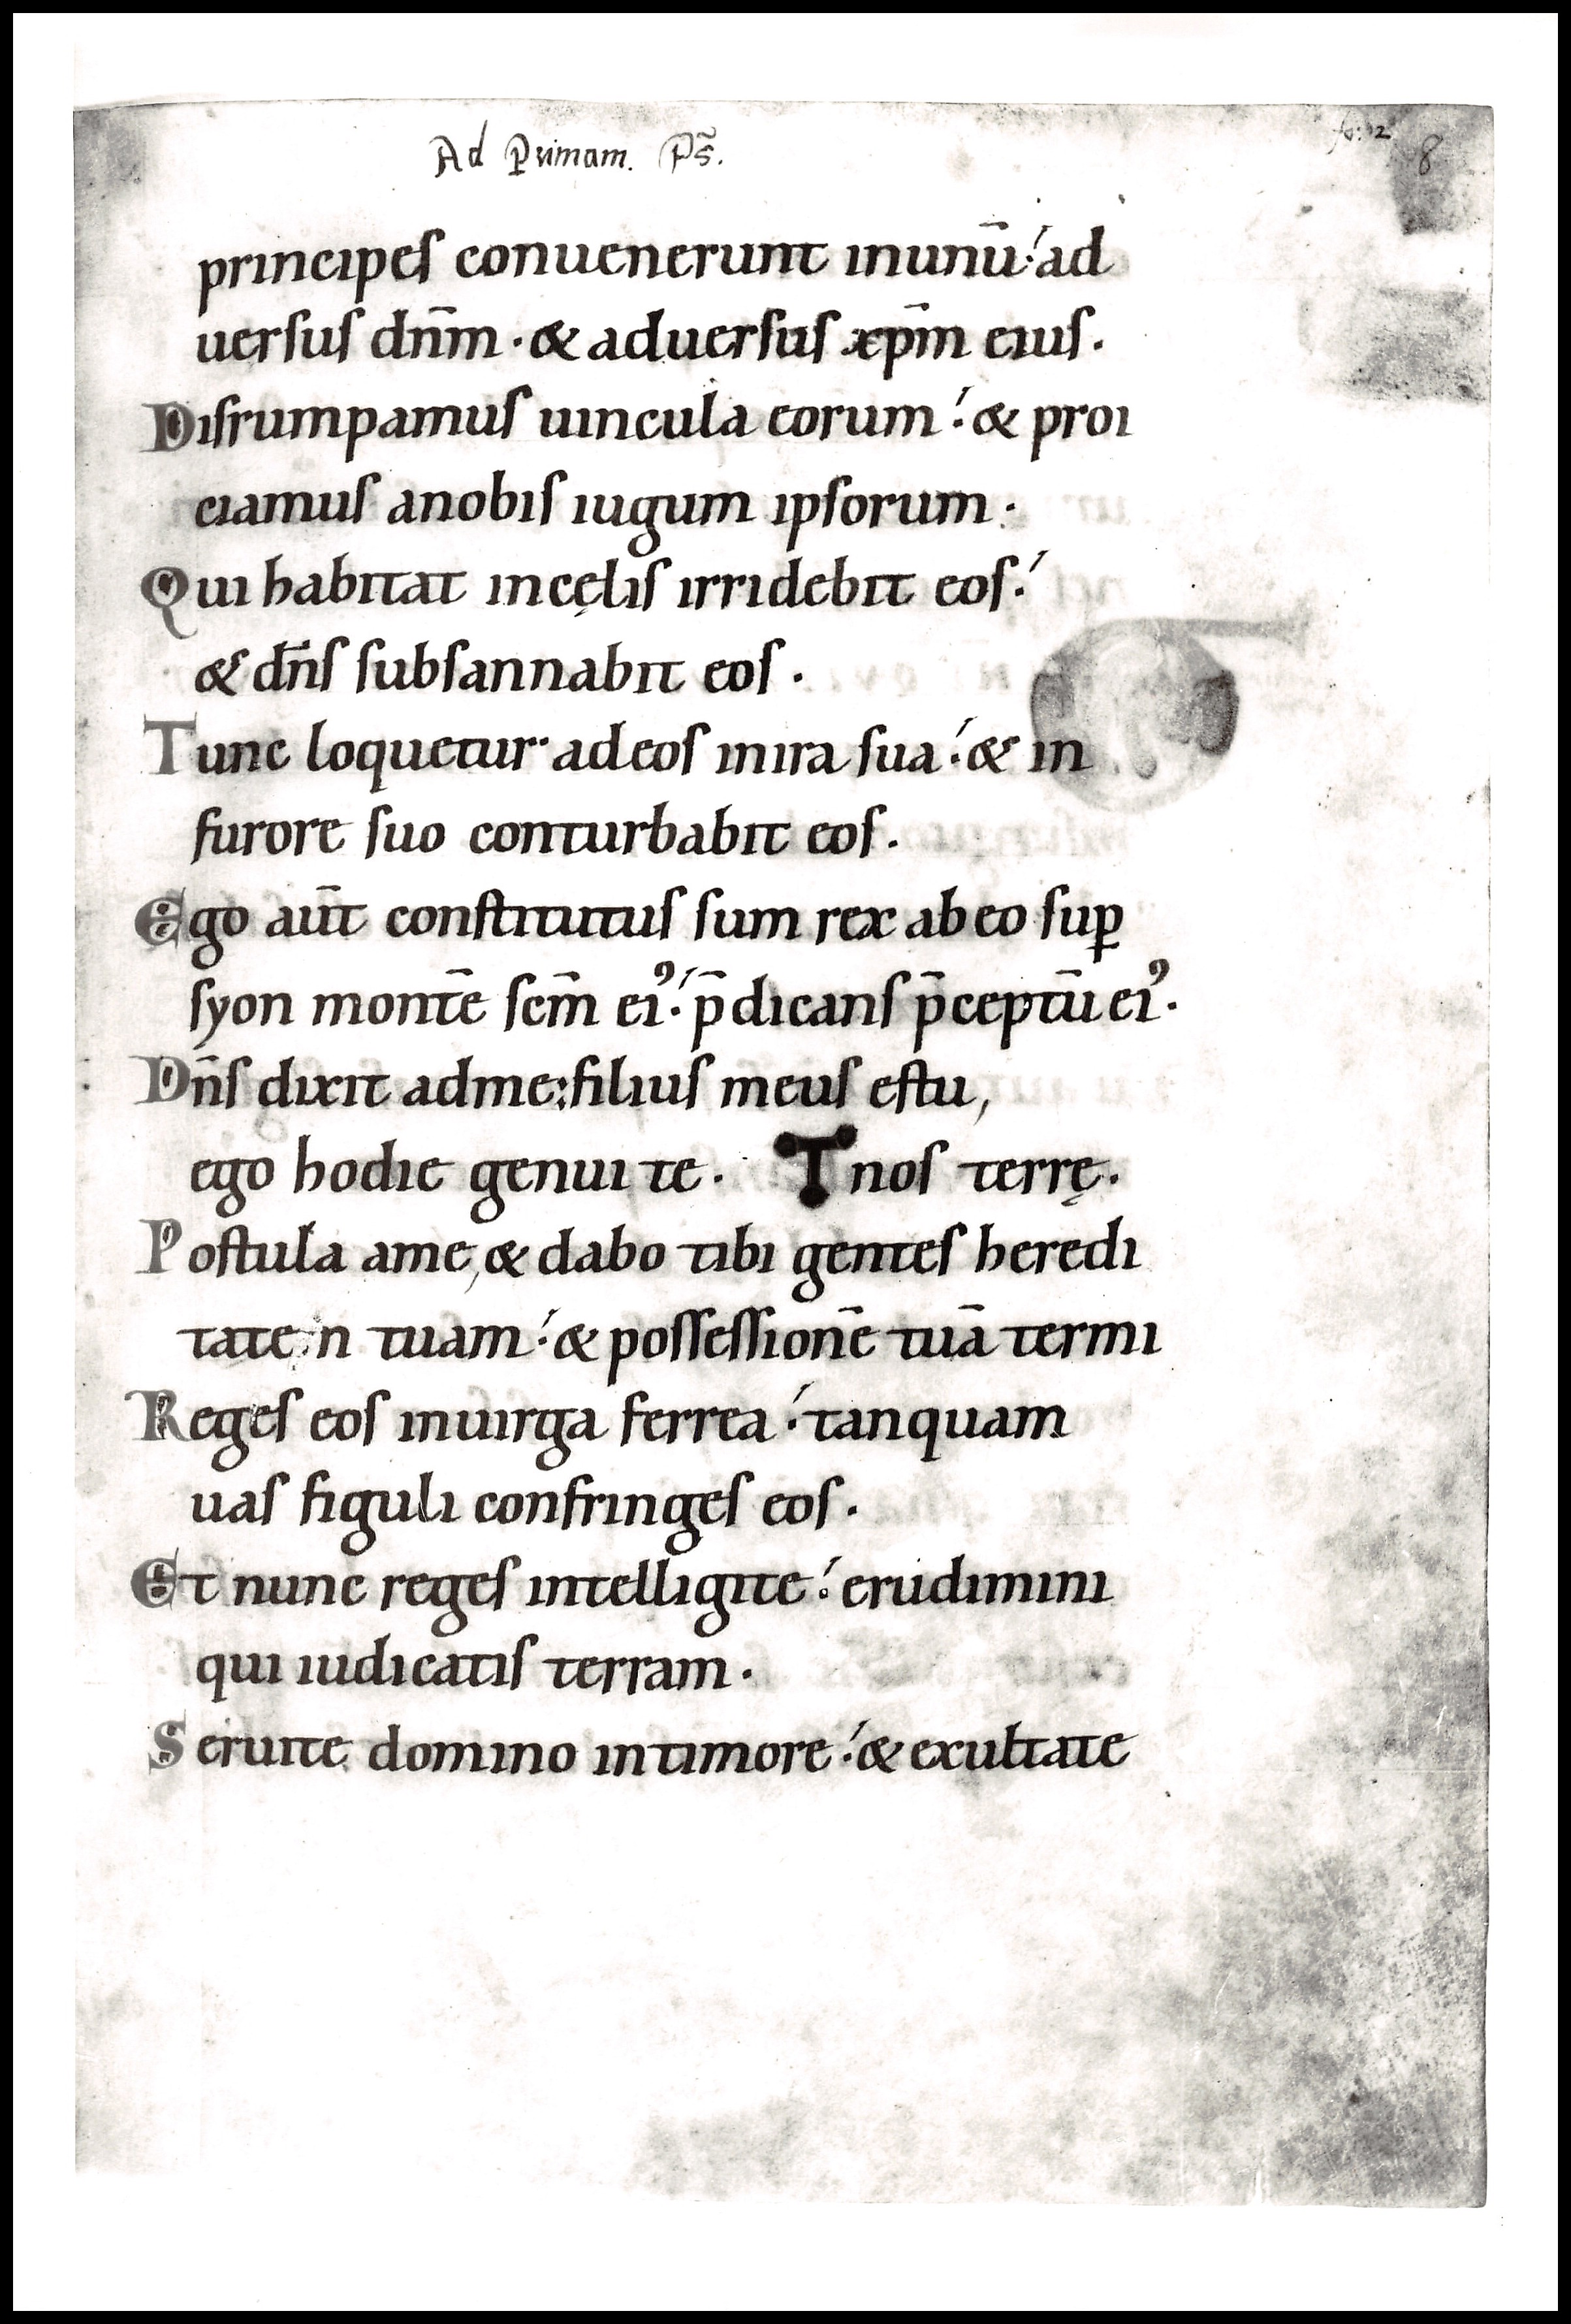 Ad Primam. Ps̃.
fo: 12
8
principes conuenerunt inunū: ad
uersus dn̄m. & aduersus xp̄m eius.
Disrumpamus uincula eorum: & proi
ciamus anobis iugum ipsorum.
Qui habitat incęlis irridebit eos:
& dn̄s subsannabit eos.
Tunc loquetur adeos inira sua: & in
furore suo conturbabit eos.
Ego aūt constitutus sum rex abeo suꝑ
syon montē scm̄ eiꝰ: p̄dicans p̄ceptū eiꝰ.
Dn̄s dixit adme: filius meus estu,
ego hodie genui te. nos terrę.
Postula ame, & dabo tibi gentes heredi
tate n tuam: & possessionē tuā termi
Reges eos inuirga ferrea: tanquam
uas figuli confringes eos.
Et nunc reges intelligite: erudimini
qui iudicatis terram.
Seruite domino intimore: & exultate